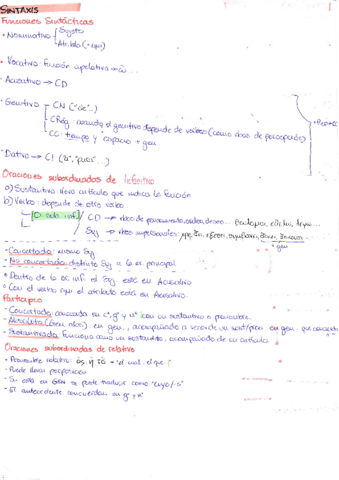 SINTAXIS
Funciones Sintácticas
• Nominativo Sujeto
Atributo (+
• Vocativo: Función apelativa → ω ...
• Acusativo → CD
• Genitivo CN ("de"...)
C Rég: cuando el genitivo depende de verbos (como vbos de percepción)
CC: tiempo y espacio + gen
• Dativo → CI ("a", "para" ...)
Oraciones subordinadas de infinitivo
a) Sustantivo: lleva artículo que indica la función
b) Verbo: depende de otro verbo
O sub inf CD → vbos de pensamiento, orden, deseo...
Suj → vbos impersonales:
gen
- Concertada: mismo Suj
- No concertada: distinto Suj a la or principal
• Dentro de la or inf. el Suj está en Acusativo
• Con el verbo que el atributo está en Acusativo.
Participio
- Concertado: concuerda en cº, gº y nº (con un sustantivo o pronombre
- Absoluto (Gen. Abs): en gen., acompañado a veces de un sust/pron en gen. que concierta
- Sustantivado: Funciona como un sustantivo, acompañado de un artículo
Oraciones subordinadas de relativo
- Pronombre relativo: ὅς, ἥ, ὅ → "el cual, el que"
- Puede llevar preposición
- Si está en GEN se puede traducir como "cuyo/-s"
- El antecedente concuerdan en gº y nº